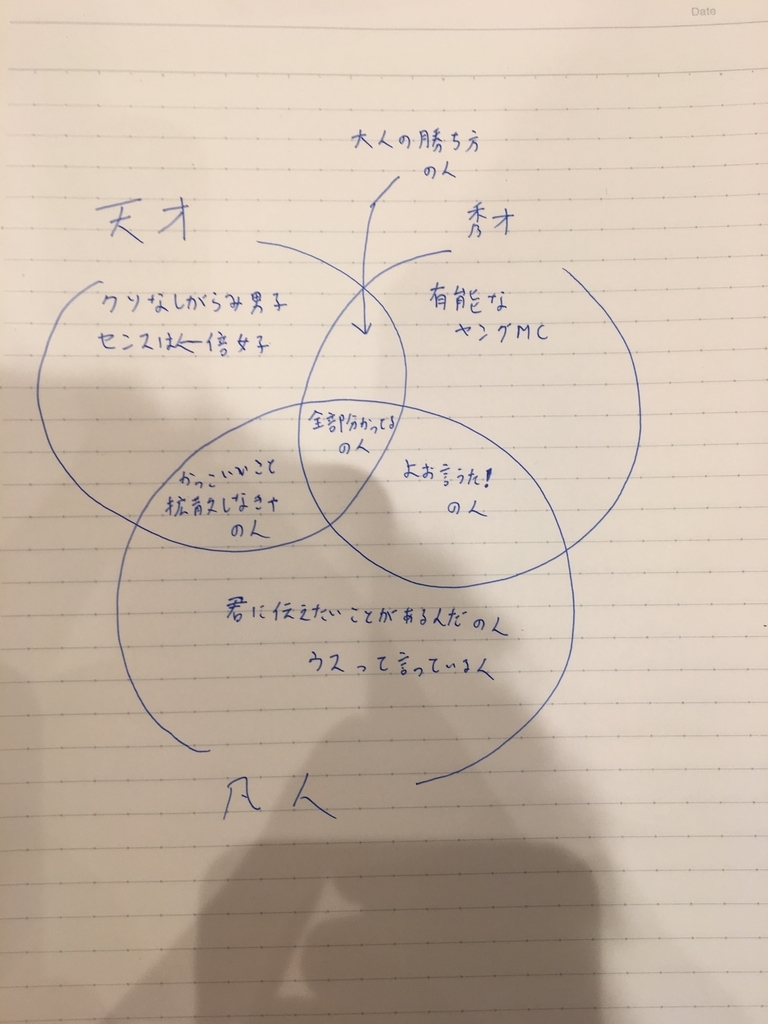 Date
大人の勝ち方
の人
天才
秀才
クソなしがらみ男子
センスは人一倍女子
有能な
ヤングMC
全部分かってる
の人
かっこいいこと
拡散しなきゃ
の人
よお言うた!
の人
君に伝えたいことがあるんだの人
ウスって言っている人
凡人